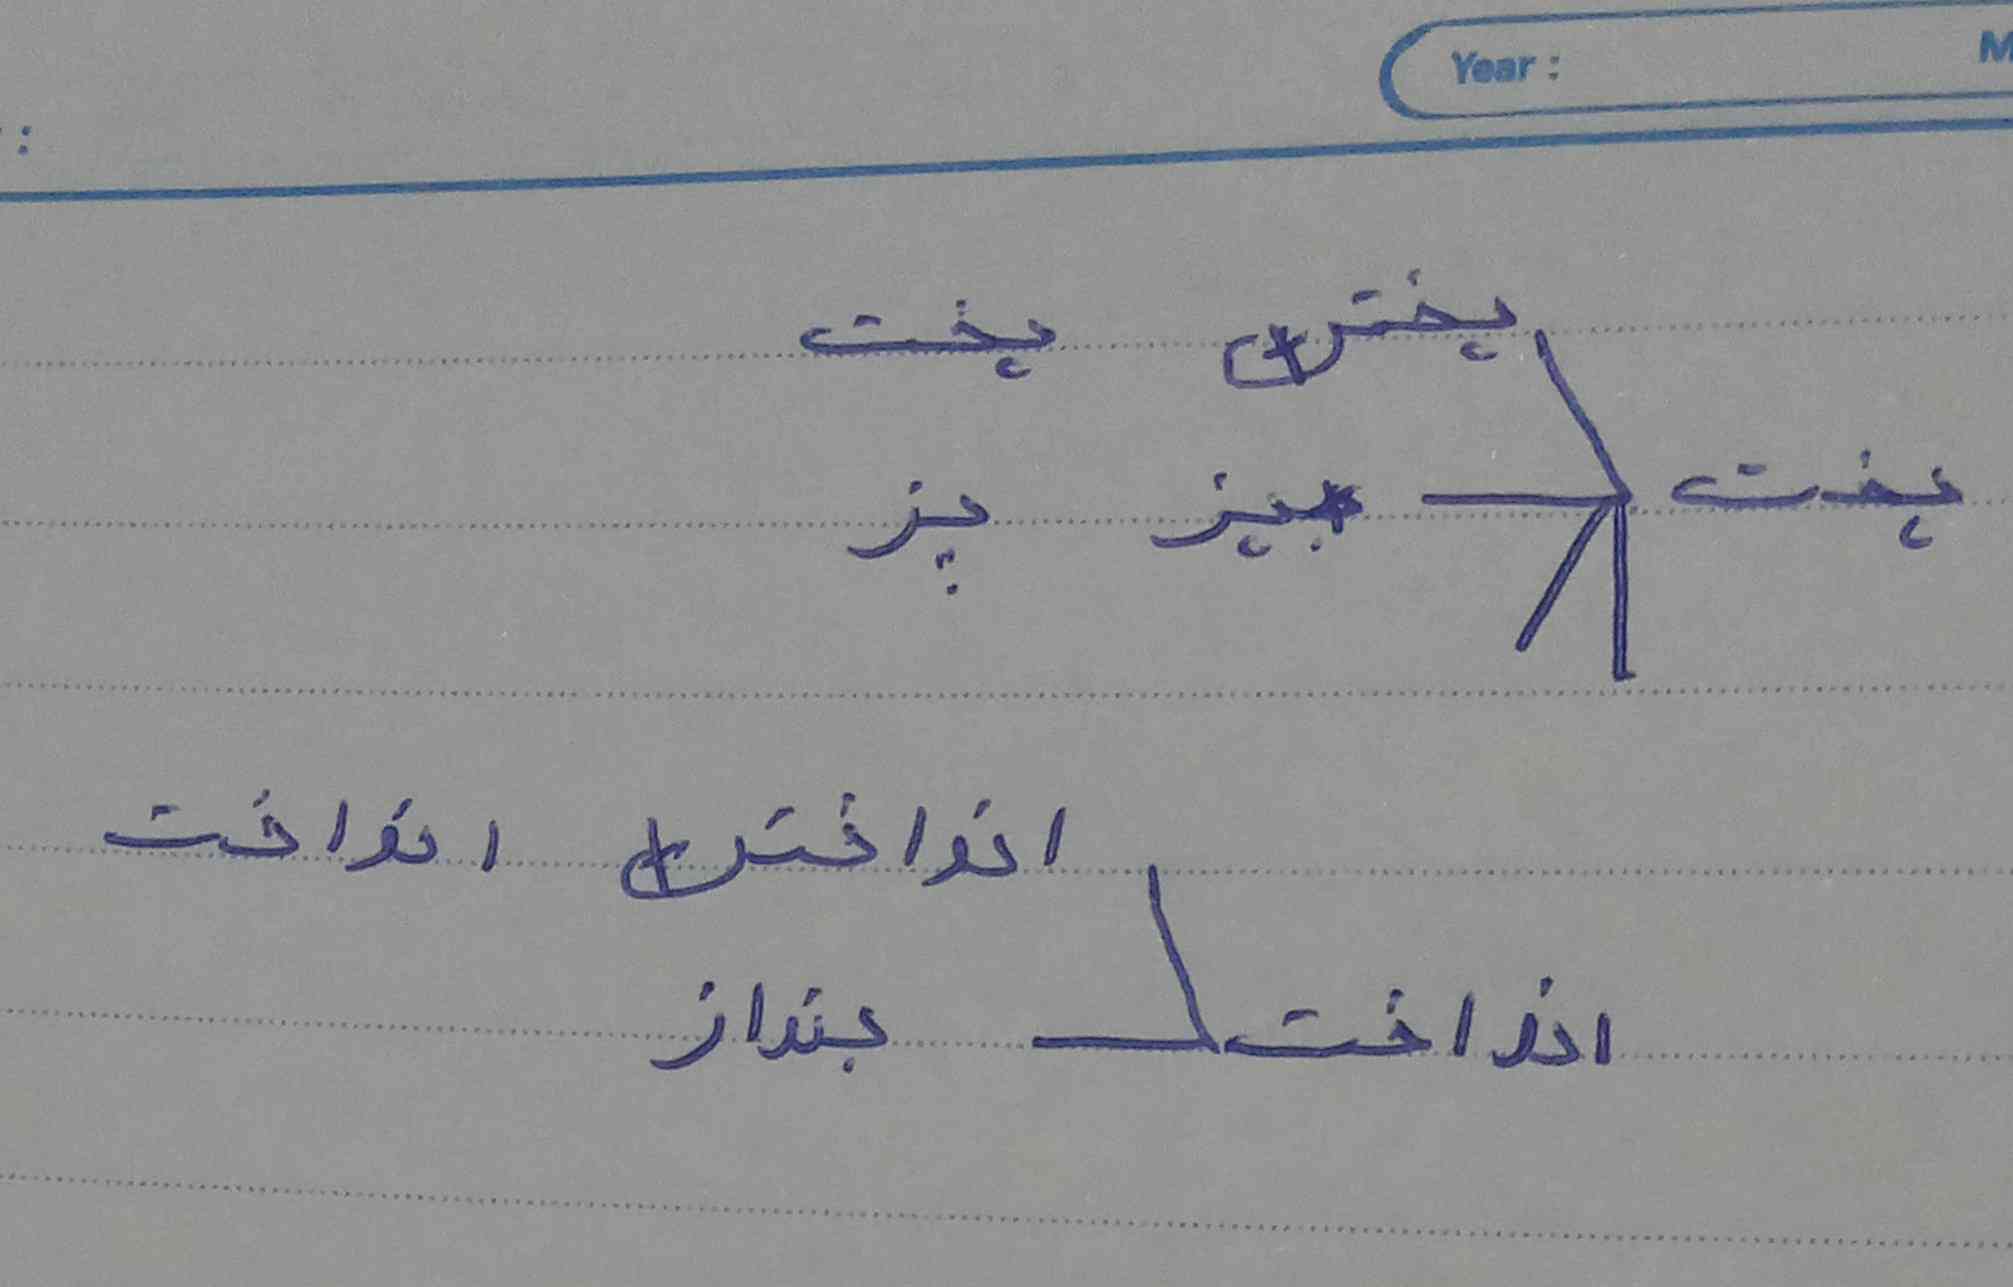 Year :
پختن پخت
پخت بپز پز
انداختن انداخت
انداخت بنداز